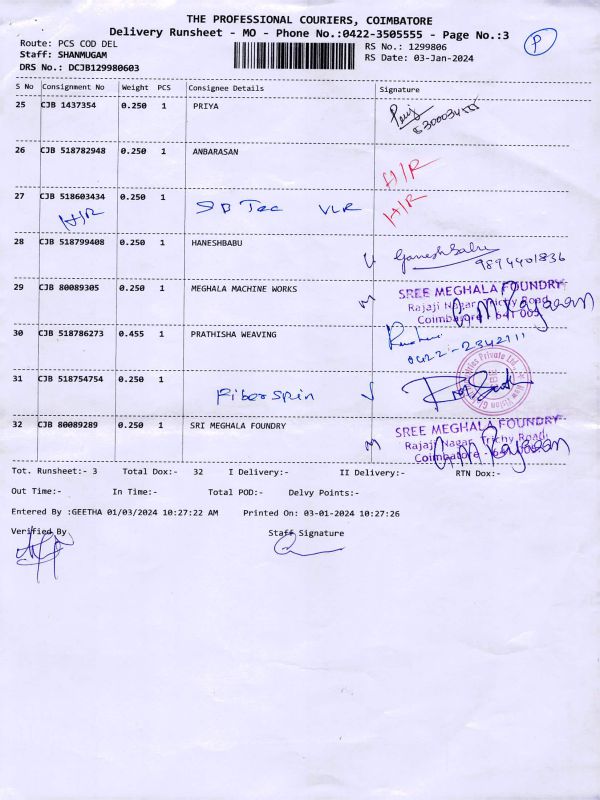 THE PROFESSIONAL COURIERS, COIMBATORE
Delivery Runsheet - MO - Phone No.:0422-3505555 - Page No.:3
P
Route: PCS COD DEL
RS No.: 1299806
Staff: SHANMUGAM
RS Date: 03-Jan-2024
DRS No.: DCJB129980603
S No Consignment No Weight PCS Consignee Details Signature
25 CJB 1437354 0.250 1 PRIYA
26 CJB 518782948 0.250 1 ANBARASAN H/R
27 CJB 518603434 0.250 1 H/R
H/R SD Tec VLR
28 CJB 518799408 0.250 1 HANESHBABU GaneshBabu
9894401836
29 CJB 80089305 0.250 1 MEGHALA MACHINE WORKS SREE MEGHALA FOUNDRY
Rajaji Nagar, Trichy Road,
Coimbatore - 641 005
30 CJB 518786273 0.455 1 PRATHISHA WEAVING
0422-2342111
31 CJB 518754754 0.250 1
Fiber spin
32 CJB 80089289 0.250 1 SRI MEGHALA FOUNDRY SREE MEGHALA FOUNDRY
Rajaji Nagar, Trichy Road,
Coimbatore - 641 005
Tot. Runsheet:- 3 Total Dox:- 32 I Delivery:- II Delivery:- RTN Dox:-
Out Time:- In Time:- Total POD:- Delvy Points:-
Entered By :GEETHA 01/03/2024 10:27:22 AM Printed On: 03-01-2024 10:27:26
Verified By Staff Signature